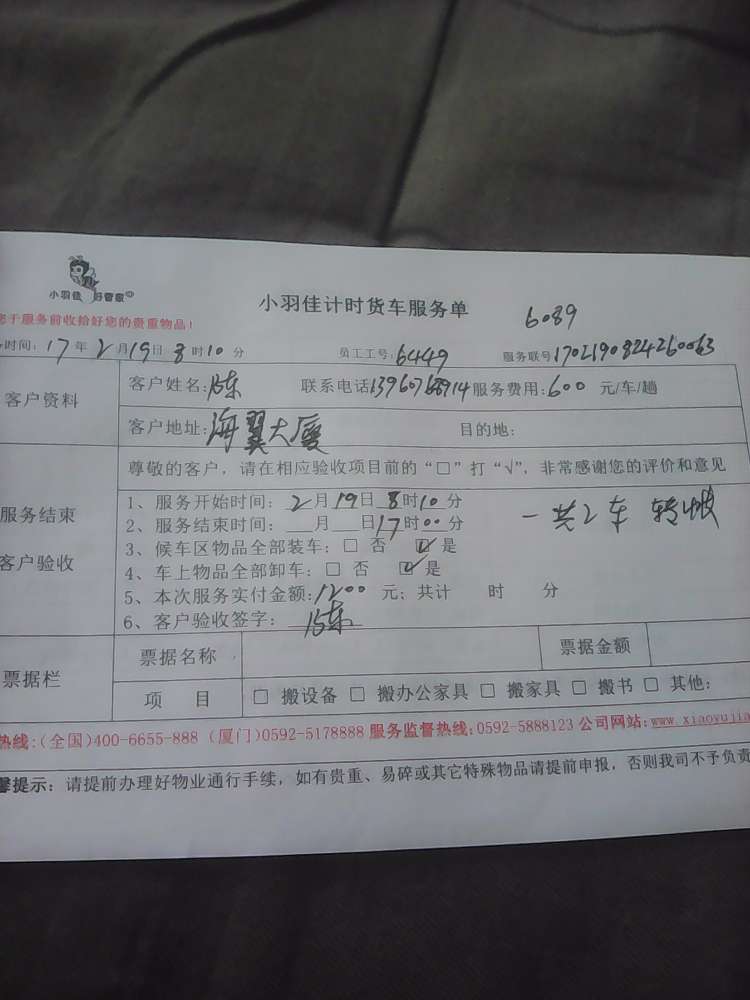 小羽佳 好管家
小羽佳计时货车服务单
6089
您于服务前收拾好您的贵重物品！
时间：17年2月19日8时10分 员工工号：6449 服务联号1702190824260063
客户资料
客户姓名：陈 联系电话13960768914服务费用：600 元/车/趟
客户地址：海翼大厦 目的地：
服务结束
客户验收
尊敬的客户，请在相应验收项目前的“□”打“√”，非常感谢您的评价和意见
1、服务开始时间：2月19日8时10分
2、服务结束时间： 月 日17时00分
一共2车 转帐
3、候车区物品全部装车：□ 否 ☑ 是
4、车上物品全部卸车：□ 否 ☑ 是
5、本次服务实付金额：1200 元；共计 时 分
6、客户验收签字：陈
票据栏
票据名称 票据金额
项 目 □ 搬设备 □ 搬办公家具 □ 搬家具 □ 搬书 □ 其他：
热线：(全国)400-6655-888 (厦门)0592-5178888 服务监督热线：0592-5888123 公司网站：www.xiaoyujia
馨提示：请提前办理好物业通行手续，如有贵重、易碎或其它特殊物品请提前申报，否则我司不予负责